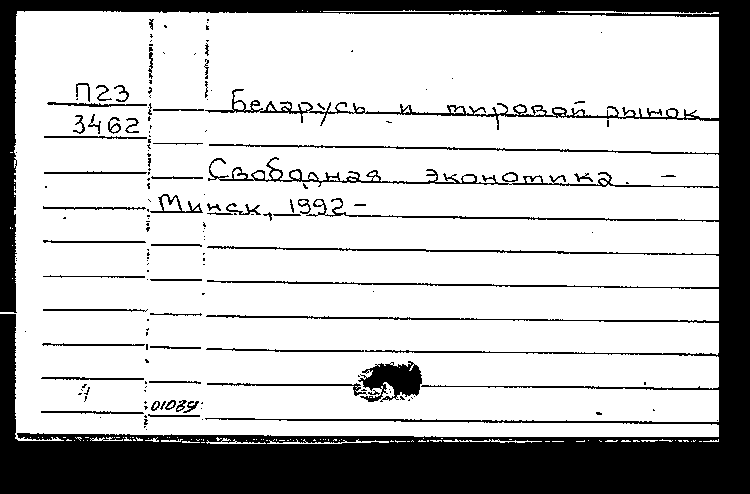 П23
3462
Беларусь и мировой рынок
Свободная экономика. –
Минск, 1992 –
4